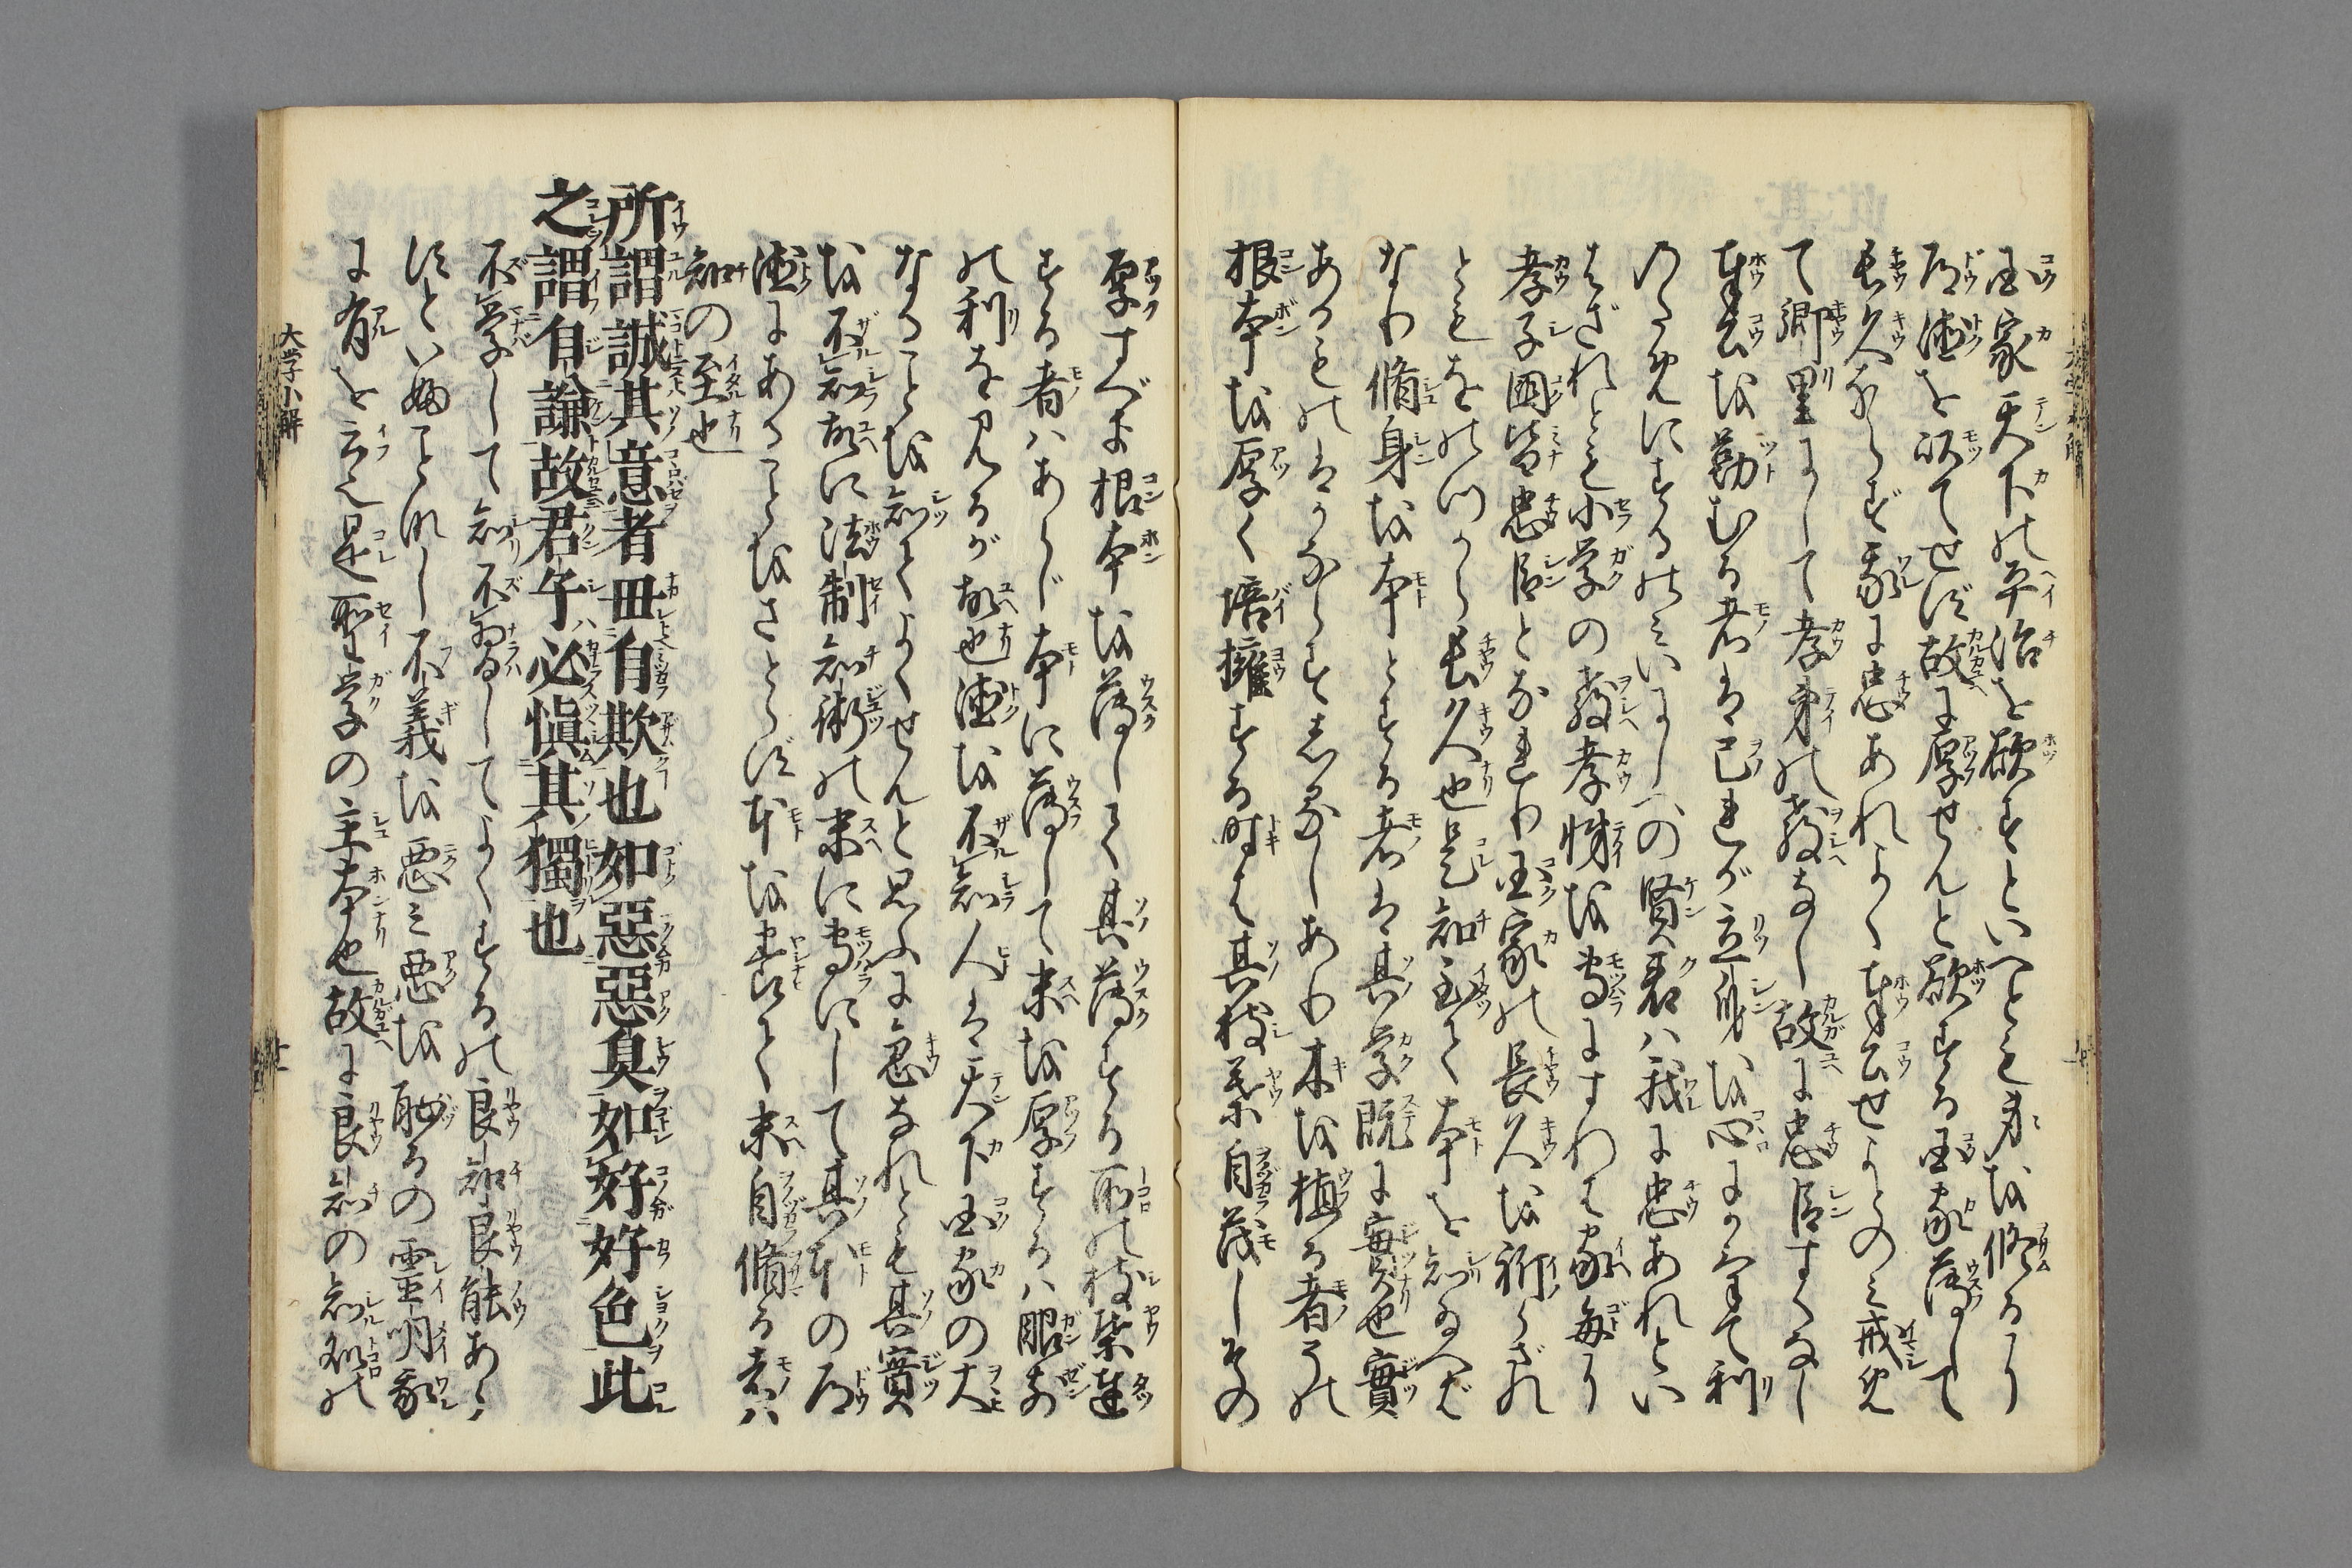 国家天下の平治を欲すといへども身を修るに
道徳を以てせず故に厚せんと欲する国家薄して
長久ならず我に忠あれよく奉公せよとのみ戒め
て郷里にして孝弟の教なし故に忠臣すくなし
奉公を勤むる者は己が立身を心にかけて利
のためにするのみいにしへの賢君は我に忠あれとい
はざれども小学の教孝悌を専にすれば家毎に
孝子国皆忠臣となれり国家の長久を祈らざれ
どもをのづから長久也是知至て本を知ゆへぞ
なり脩身を本とする者は其学既に實也實
あるものはかならず然なしあり木を植る者その
根本を厚く培擁する時は其枝葉自茂しその
厚すべき根本を薄して其薄する所の枝葉達
する者はあらじ本に薄して末を厚するは眼前
の利を見るが故也徳を不知人は天下国家の大
なることを知てよくせんと思ふに急なれども其實
を不知故に法制知術の末に専にして其本の道
徳にあることをさとらず本を養て末自脩る者は
知の至也
所謂誠其意者毋自欺也如惡惡臭如好好色此
之謂自謙故君子必愼其獨也
不学して知不習してよくするの良知良能あら
ずといふことなし不義を悪み悪を恥るの霊明我
に有を云也是聖学の主本也故に良知の知処の
大学小解
十一